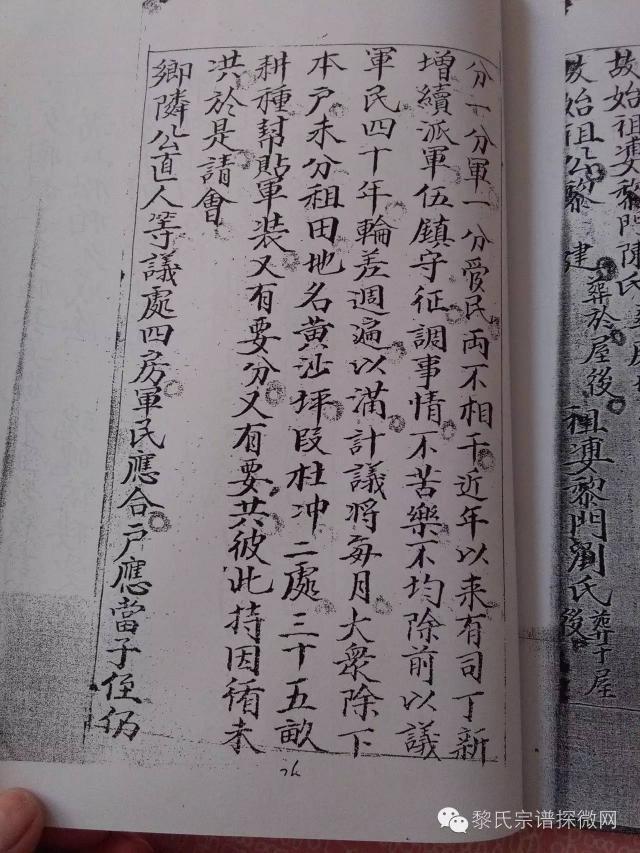 故始祖婆黎門陳氏
故始祖公黎 建 葬於屋後 祖婆黎門劉氏葬于屋後
分一分軍一分愛民両不相干近年以来有司丁新
增續派軍伍鎮守征調事情不苦樂不均除前以議
軍民四十年輪差週遍以滿計議將每月大衆除下
本户未分租田地名黄沙坪段杜冲二處三十五畝
耕種幇貼軍装又有要分又有要共彼此持因循未
洪於是請會
鄉隣公直人等議處四房軍民應合户應當子侄仍
黎氏宗谱探微网